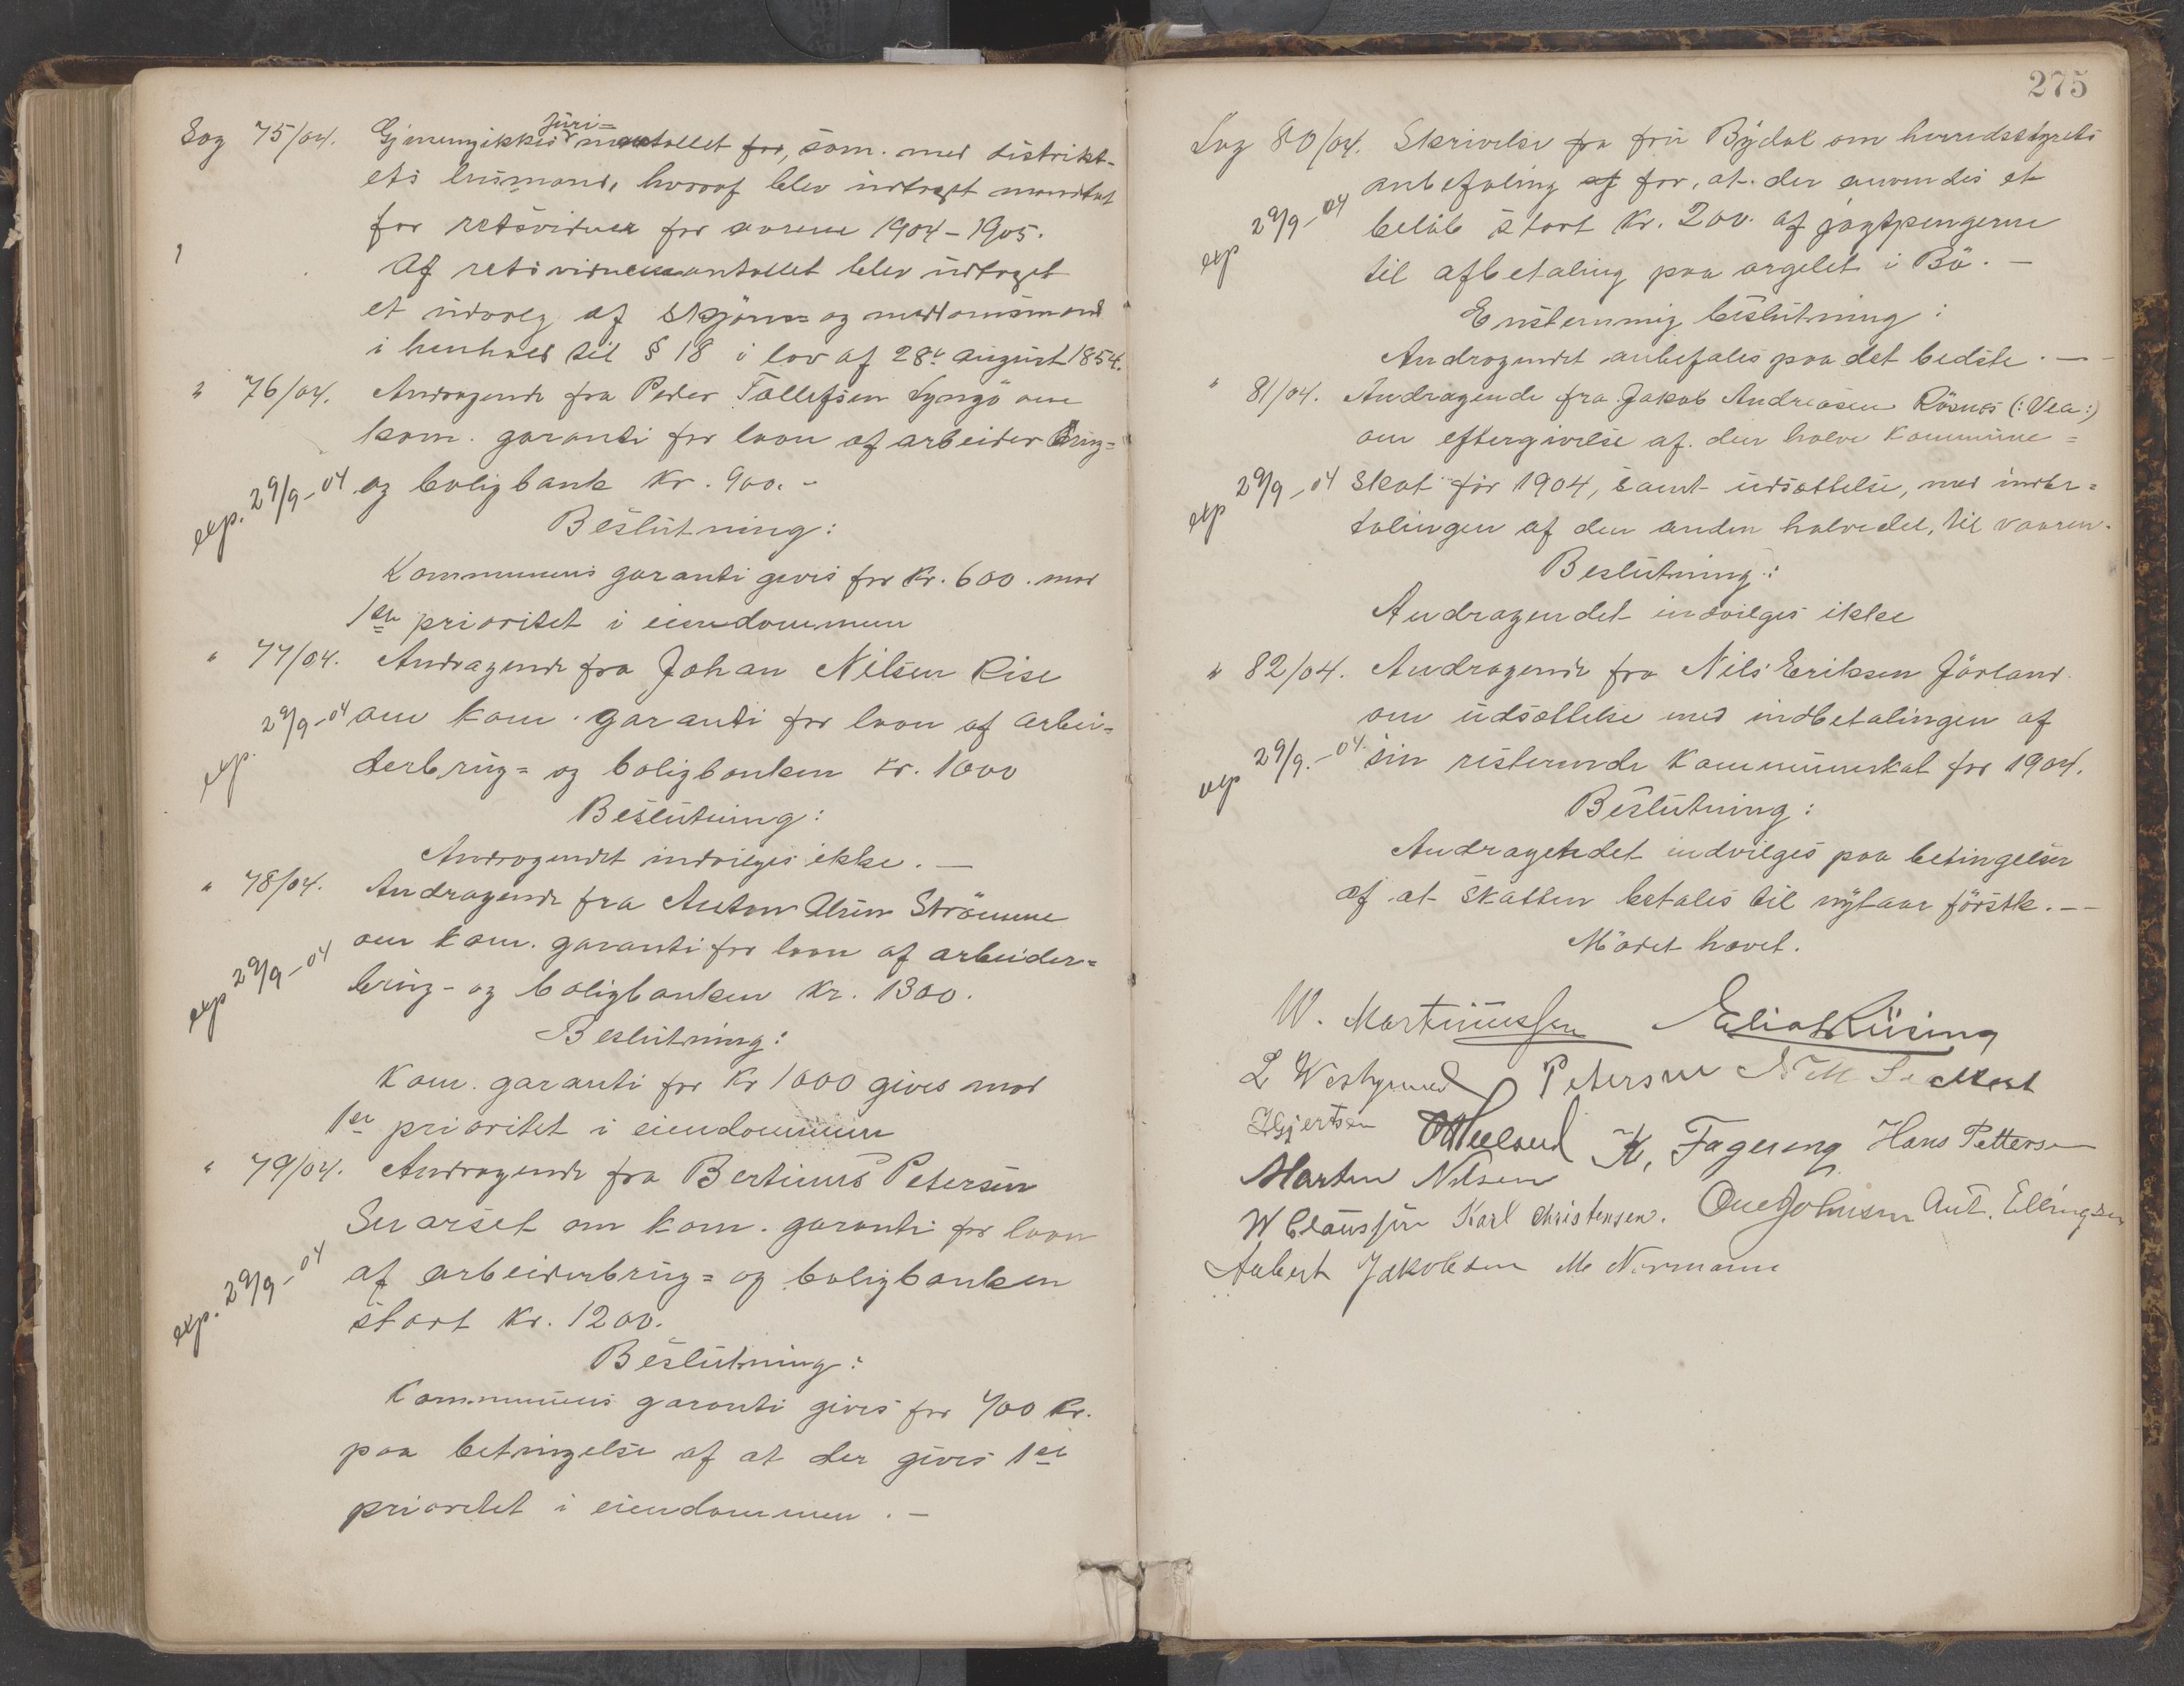 Sag 75/04. Gjennemgikkes Juri= mantallet for, sam. med distrikt-
ets lensmand, hvoraf blev udtaget mandtal
for retsvidner for aarene 1904–1905.
Af retsvidnemantallet blev udtaget
et udvalg af skjöns= og
i henhold til § 18 i lov af 28de august 1854.
" 76/04. Andragende fra Peder Tollefsen Lyngö om
kom. garanti for laan af arbeider Brug=
exp. 29/9-04 og boligbank Kr. 900.-
Beslutning:
Kommunens garanti gives for Kr. 600. mod
1ste prioritet i eiendommen
" 77/04. Andragende fra Johan Nilsen Rise
exp. 29/9-04 om kom. garanti for laan af arbei=
derbrug= og boligbanken Kr. 1000
Beslutning:
Andragendet indvilges ikke.—
" 78/04. Andragende fra Anton Olsen Strömme
exp 29/9-04 om kom. garanti for laan af arbeider=
brug- og boligbanken Kr. 1300.
Beslutning:
Kom. garanti for Kr 1000 gives mod
1ste prioritet i eiendommen
" 79/04. Andragende fra Bertinus Petersen
Svarset om kom. garanti for laan
exp. 29/9-04 af arbeiderbrug= og boligbanken
stort Kr. 1200.
Beslutning:
Kommunens garanti gives for 700 Kr.
paa betingelse af at der gives 1ste
prioritet i eiendommen.—
275
Sag 80/04. Skrivelse fra fru Bÿdal om herredsstyrets
anbefaling af for, at der anvendes et
exp 29/9-04 belöb stort Kr. 200. af jagtpengerne
til afbetaling paa orgelet i Bö.—
Enstemmig beslutning:
Andragendet anbefales paa det bedste.—
" 81/04. Andragende fra Jakob Andreasen Rösnes (:Vea:)
om eftergivelse af den halve kommune=
exp 29/9-04 skat för 1904, samt udsættelse, med indbe=
talingen af den anden halvedel, til vaaren.
Beslutning:
Andragendet indvilges ikke
" 82/04. Andragende fra Nils Eriksen Jörland
om udsættelse med indbetalingen af
exp 29/9.-04. sin resterende kommuneskat for 1904.
Beslutning:
Andragendet indvilges paa betingelse
af at skatten betales til nÿtaar förstk.—
Mödet hævet.
W. Martinussen Elias Rüsing
L Petersen
Hgjertsen K, Fagereng Hans Pettersen
Marten Nilsen
W Claussen Karl Christensen. Ole Johnsen Ant. Ellingsen
Aubert Jakobsen M Normann